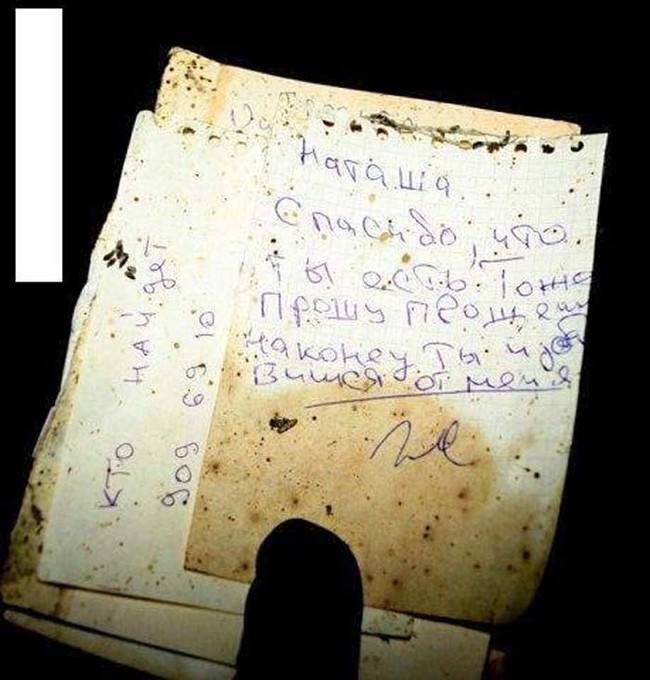 Наташа
Спасибо, что
ты есть. Тоже
Прошу прощени
наконец ты
Вишся от меня
кто найдет
909 69 10